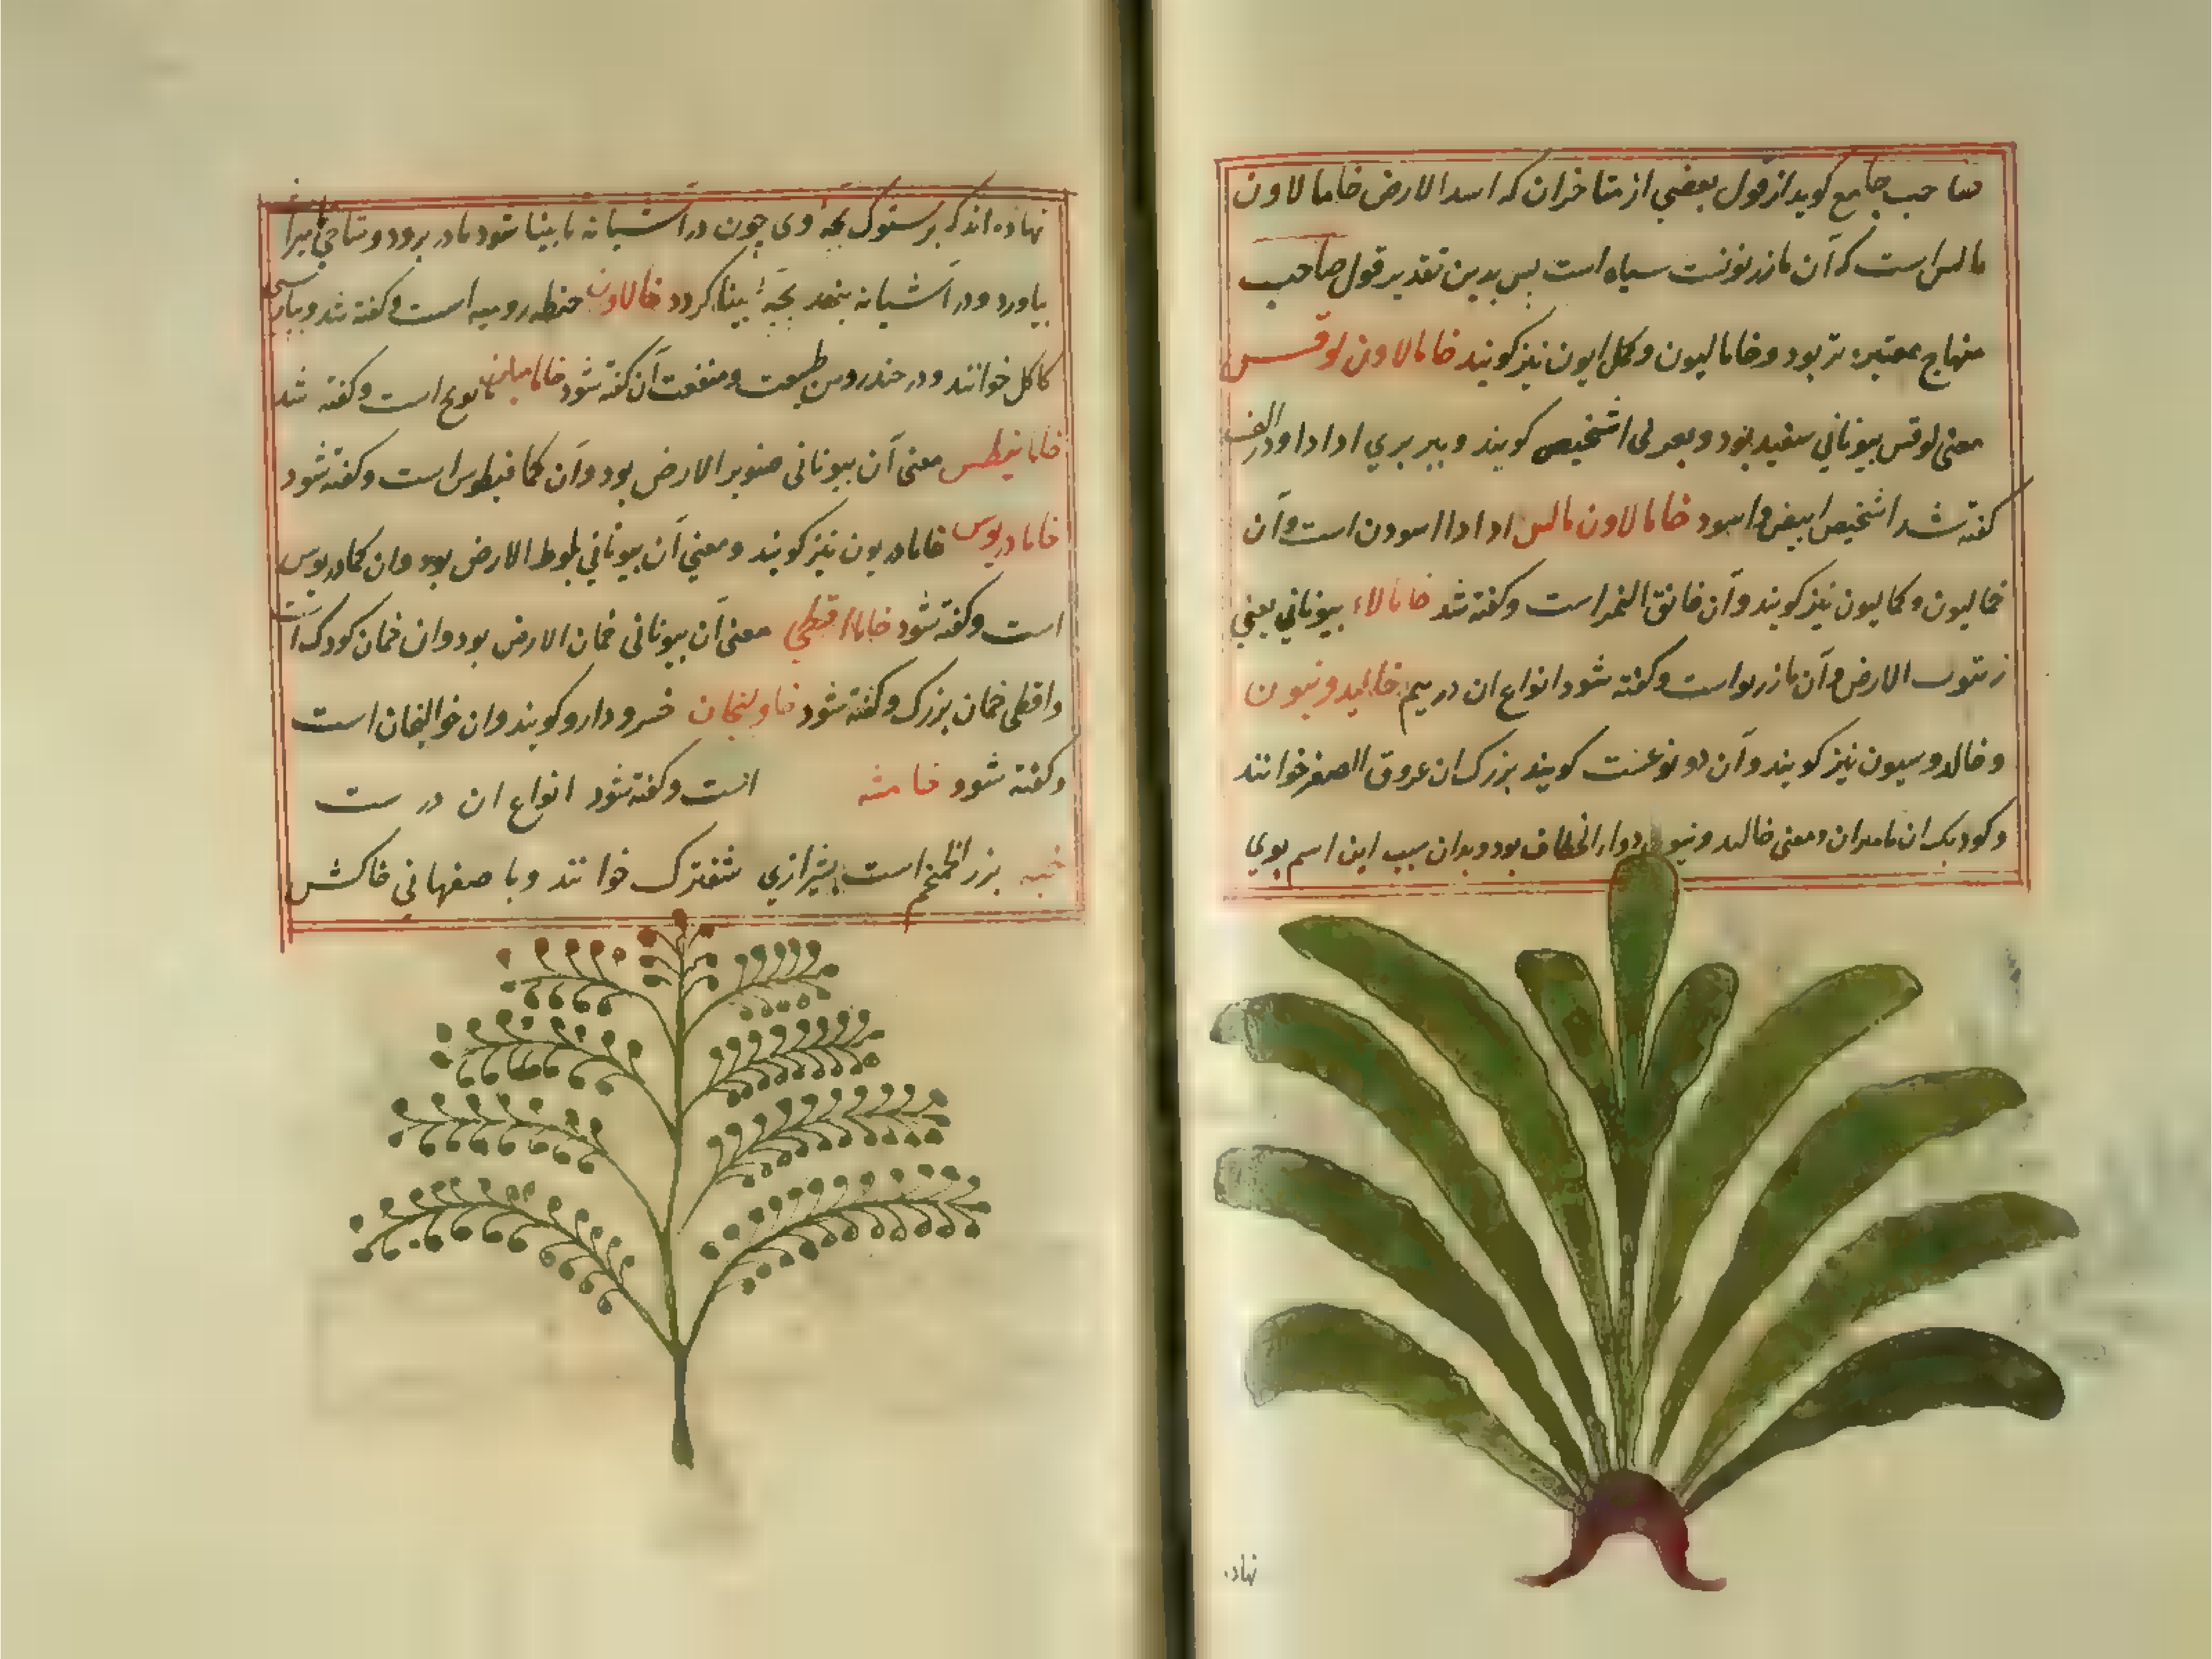 صاحب جامع كويد از قول بعضي از متاخران كه اسد الارض خامالاون
مالس است كه آن مازريونست سياه است پس بدين تقدير قول صاحب
منهاج معتبره تر بود و خاماليون و كمل ايون نيز كويند خامالاون لوقس
معنى لوقس بيوناني سفيد بود و بعربى اشخيص كويند و ببربري ادادا و در الف
كفته شد اشخيص ابيض و اسود خامالاون مالس ادادا اسودن است و آن
خماليون و كماليون نيز كويند و آن خانق النمر است و كفته شد خامالاء بيوناني يعني
زيتون الارض و آن مازريو است و كفته شود انواع ان در ميم خاليدونيون
و خالدوسيون نيز كويند و آن دو نوعست كويند بزرك ان عروق الصفر خوانند
و كودبك ان مامىران و معنى خاليدونيون دواء الخطاف بود و بدان سبب اين اسم بوي
نهاده
نهاده اند كه پرستوك بچه وى چون در آشيانه نابينا شود مادر برود و شاخى
بياورد و در آشيانه بنهد بچه بينا كردد خالاون حنطه روميه است و كفته شد و
كاكل خوانند و در خندروس طبيعت و منفعت آن كفته شود خاماميلن بابونج است و كفته شد
خامانيطس معنى آن بيونانى صنوبر الارض بود و آن كمافيطوس است و كفته شود
خامادريوس خامادريون نيز كويند و معني آن بيوناني بلوط الارض بود و ان كمادريوس
است و كفته شود خاما اقطي معنى آن بيونانى خمان الارض بود و ان خمان كودك است
و اقطى خمان بزرك و كفته شود خاولنجان خسرودارو كويند و ان خوالنجان است
و كفته شود خامشه است و كفته شود انواع ان در ست
خبه بزر الخمخم است بشيرازي شفترك خوانند و باصفهاني خاكشى